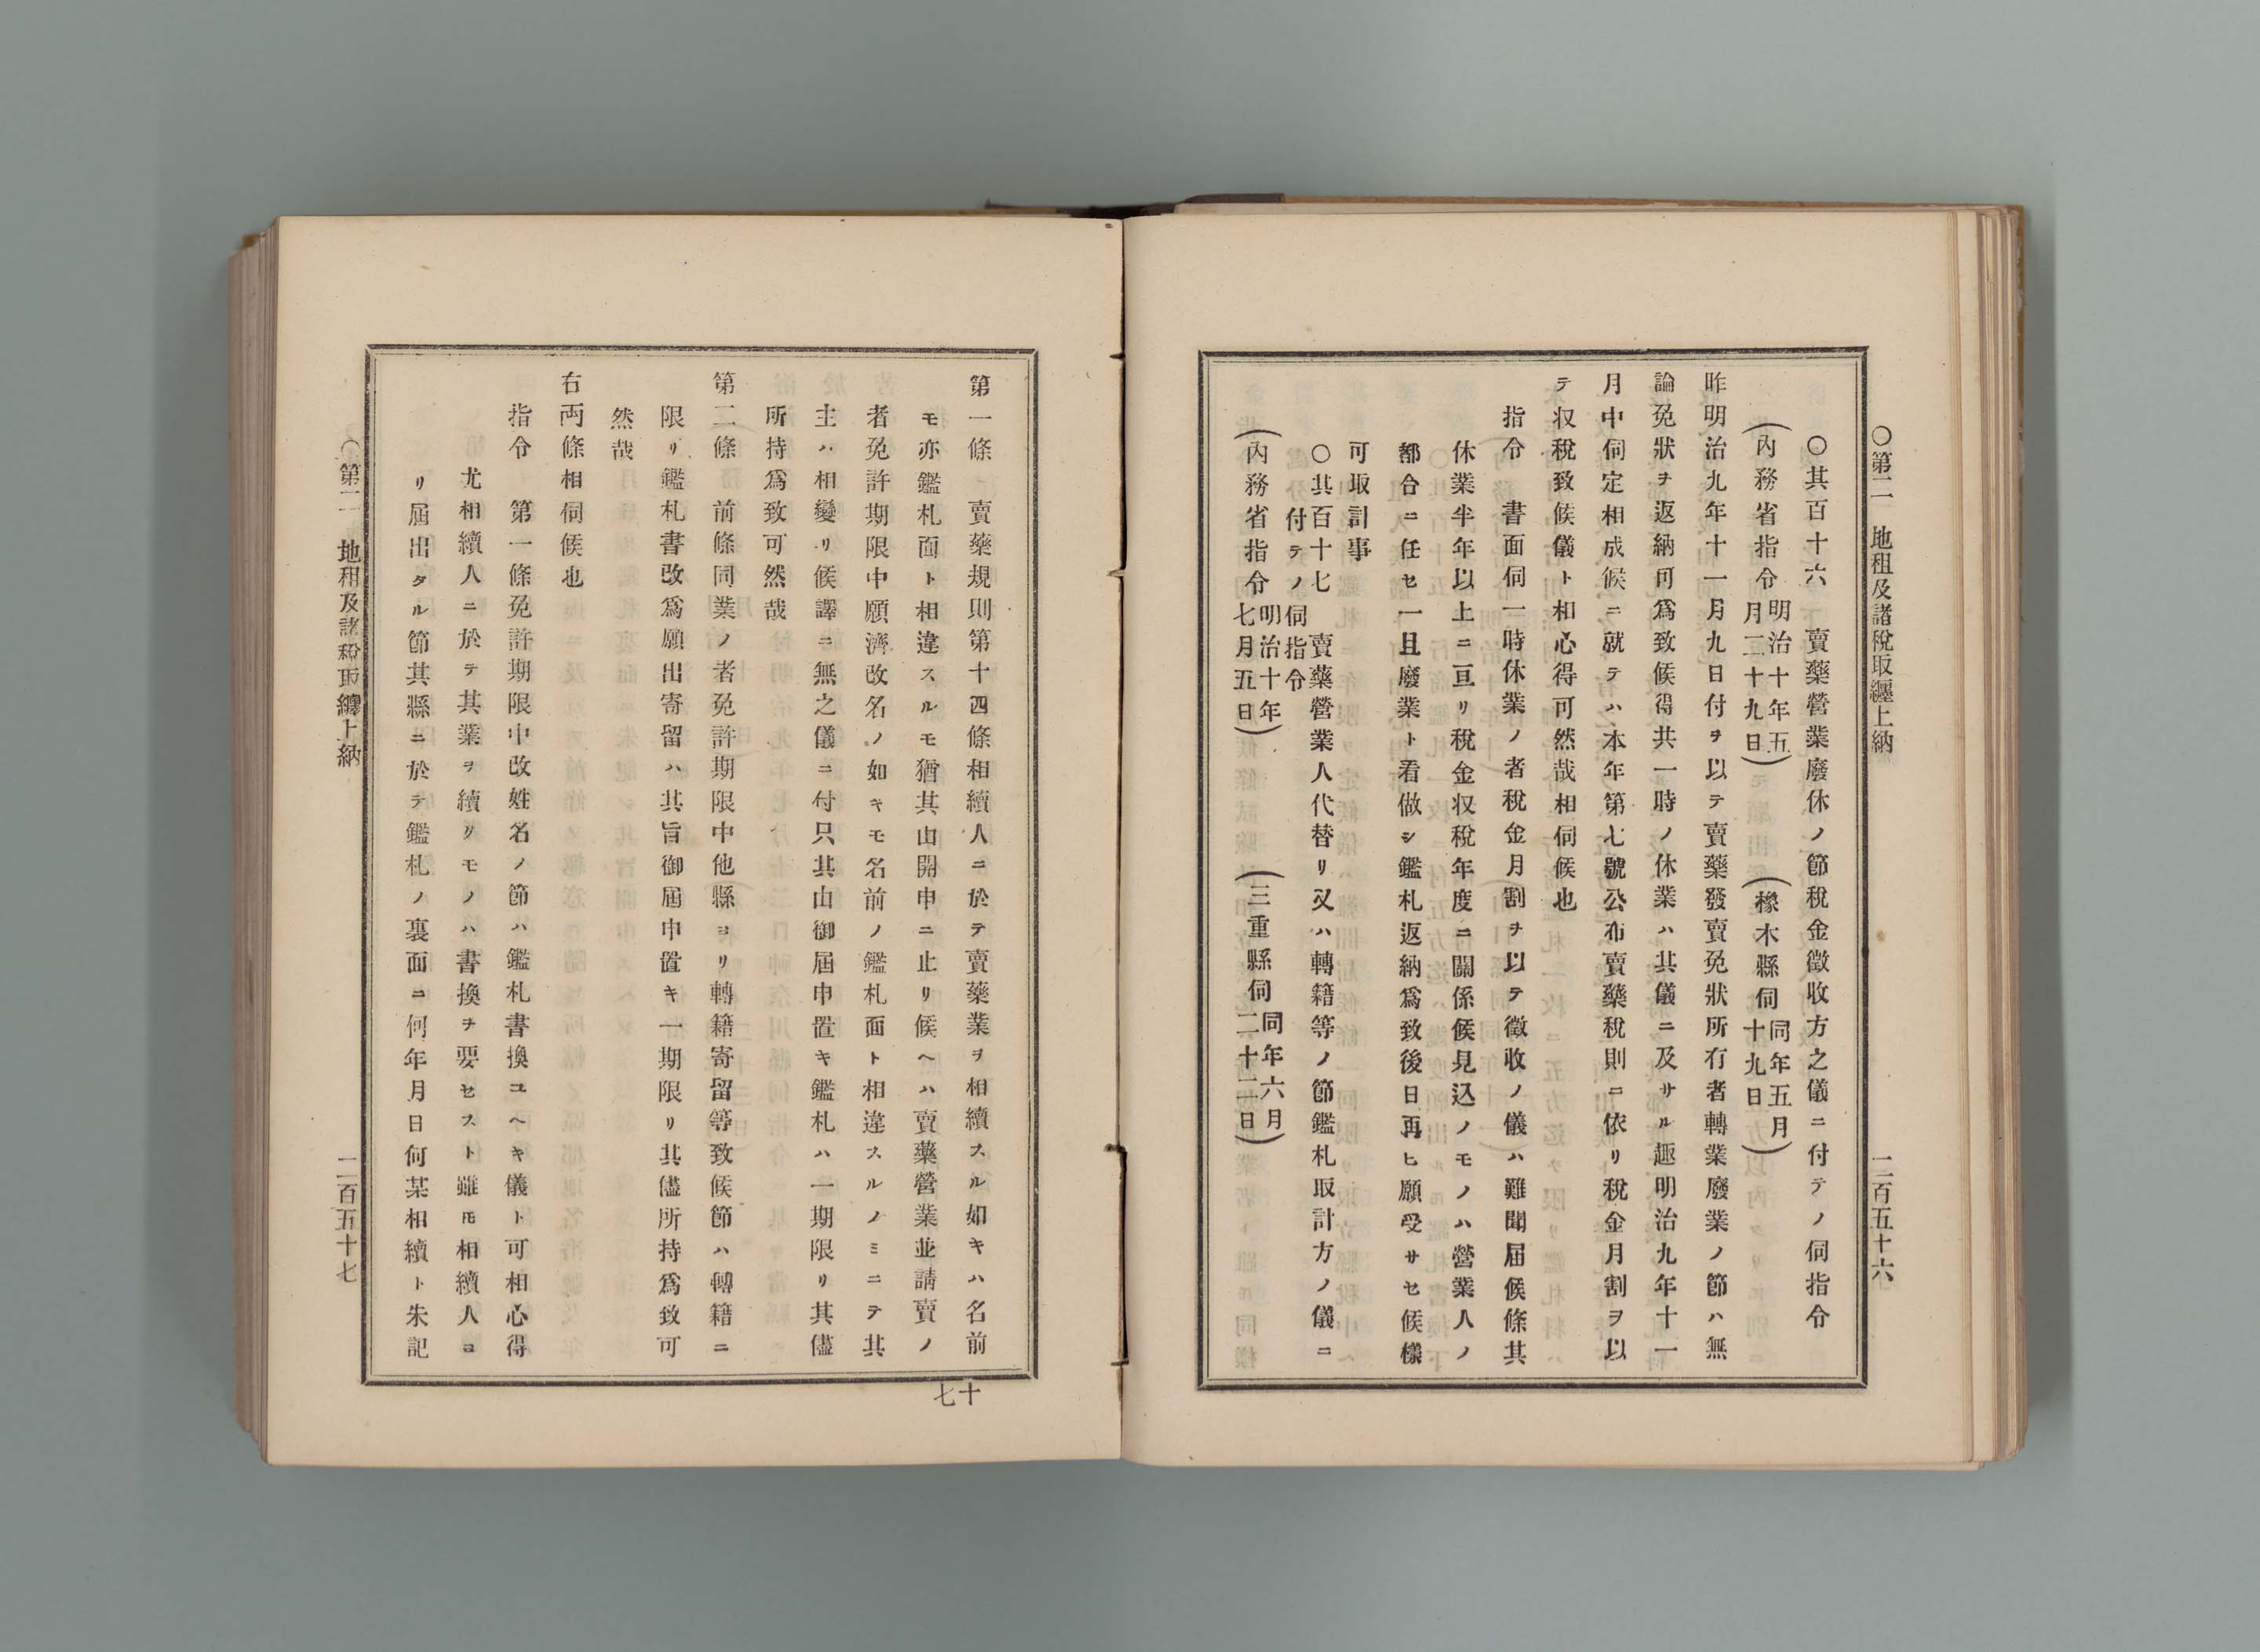 ○第二　地租及諸稅取纏上納
二百五十六
○其百十六　賣藥營業廢休ノ節稅金徵收方之儀ニ付テノ伺指令
（內務省指令明治十年五月二十九日）　（橡木縣伺同年五月十九日）
昨明治九年十一月九日付ヲ以テ賣藥發賣免狀所有者轉業廢業ノ節ハ無
論免狀ヲ返納可爲致候得共一時ノ休業ハ其儀ニ及サル趣明治九年十一
月中伺定相成候ニ就テハ本年第七號公布賣藥稅則ニ依リ稅金月割ヲ以
テ収稅致候儀ト相心得可然哉相伺候也
指令　書面伺一時休業ノ者稅金月割ヲ以テ徵收ノ儀ハ難聞届候條其
休業半年以上ニ亘リ稅金収稅年度ニ關係候見込ノモノハ營業人ノ
都合ニ任セ一且廢業ト看做シ鑑札返納爲致後日再ヒ願受サセ候樣
可取計事
○其百十七　賣藥營業人代替リ又ハ轉籍等ノ節鑑札取計方ノ儀ニ
付テノ伺指令
（內務省指令明治十年七月五日）　（三重縣伺同年六月二十二日）
第一條　賣藥規則第十四條相續人ニ於テ賣藥業ヲ相續スル如キハ名前
モ亦鑑札面ト相違スルモ猶其由開申ニ止リ候ヘハ賣藥營業並請賣ノ
者免許期限中願濟改名ノ如キモ名前ノ鑑札面ト相違スルノミニテ其
主ハ相變リ候譯ニ無之儀ニ付只其由御屆申置キ鑑札ハ一期限リ其儘
所持爲致可然哉
第二條　前條同業ノ者免許期限中他縣ヨリ轉籍寄留等致候節ハ轉籍ニ
限リ鑑札書改爲願出寄留ハ其旨御屆申置キ一期限リ其儘所持爲致可
然哉
右両條相伺候也
指令　第一條免許期限中改姓名ノ節ハ鑑札書換ユヘキ儀ト可相心得
尤相續人ニ於テ其業ヲ續リモノハ書換チ要セスト雖モ相續人ヨ
リ屆出タル節其縣ニ於テ鑑札ノ裏面ニ何年月日何某相續ト朱記
○第二　地租及諸稅取纏上納
二百五十七
十七